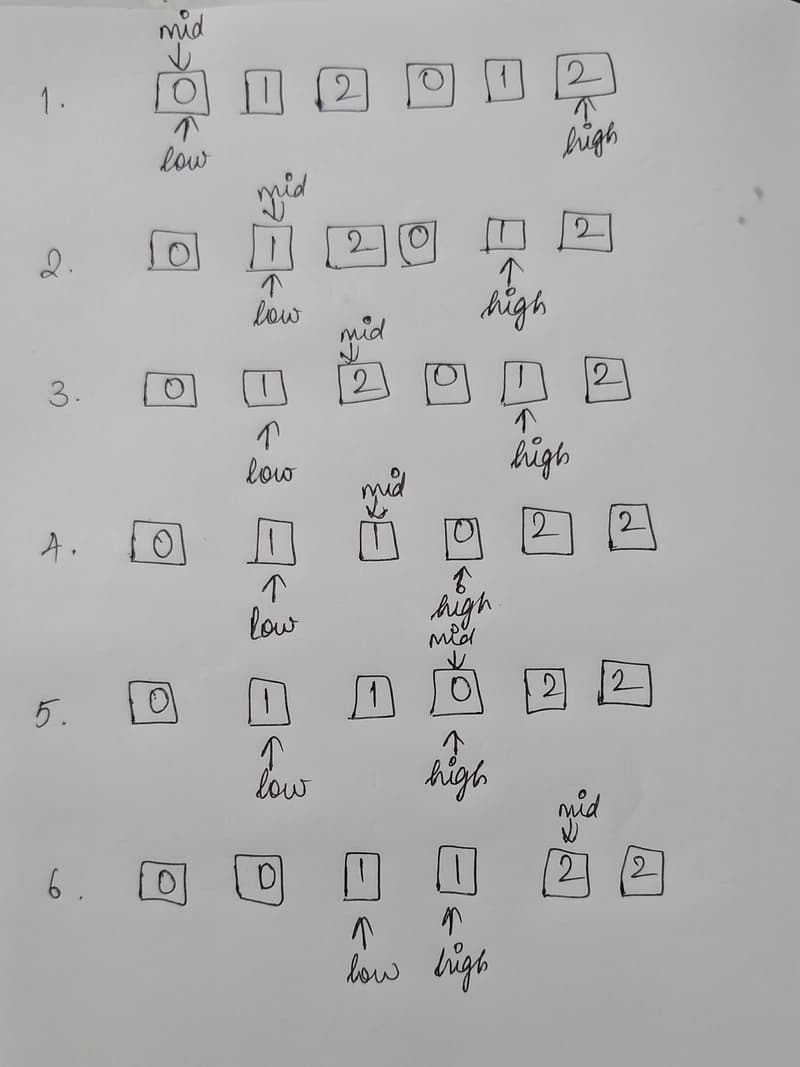 mid
1. 0 1 2 0 1 2
low high
mid
2. 0 1 2 0 1 2
low high
mid
3. 0 1 2 0 1 2
low high
mid
4. 0 1 1 0 2 2
low high
mid
5. 0 1 1 0 2 2
low high
mid
6. 0 0 1 1 2 2
low high